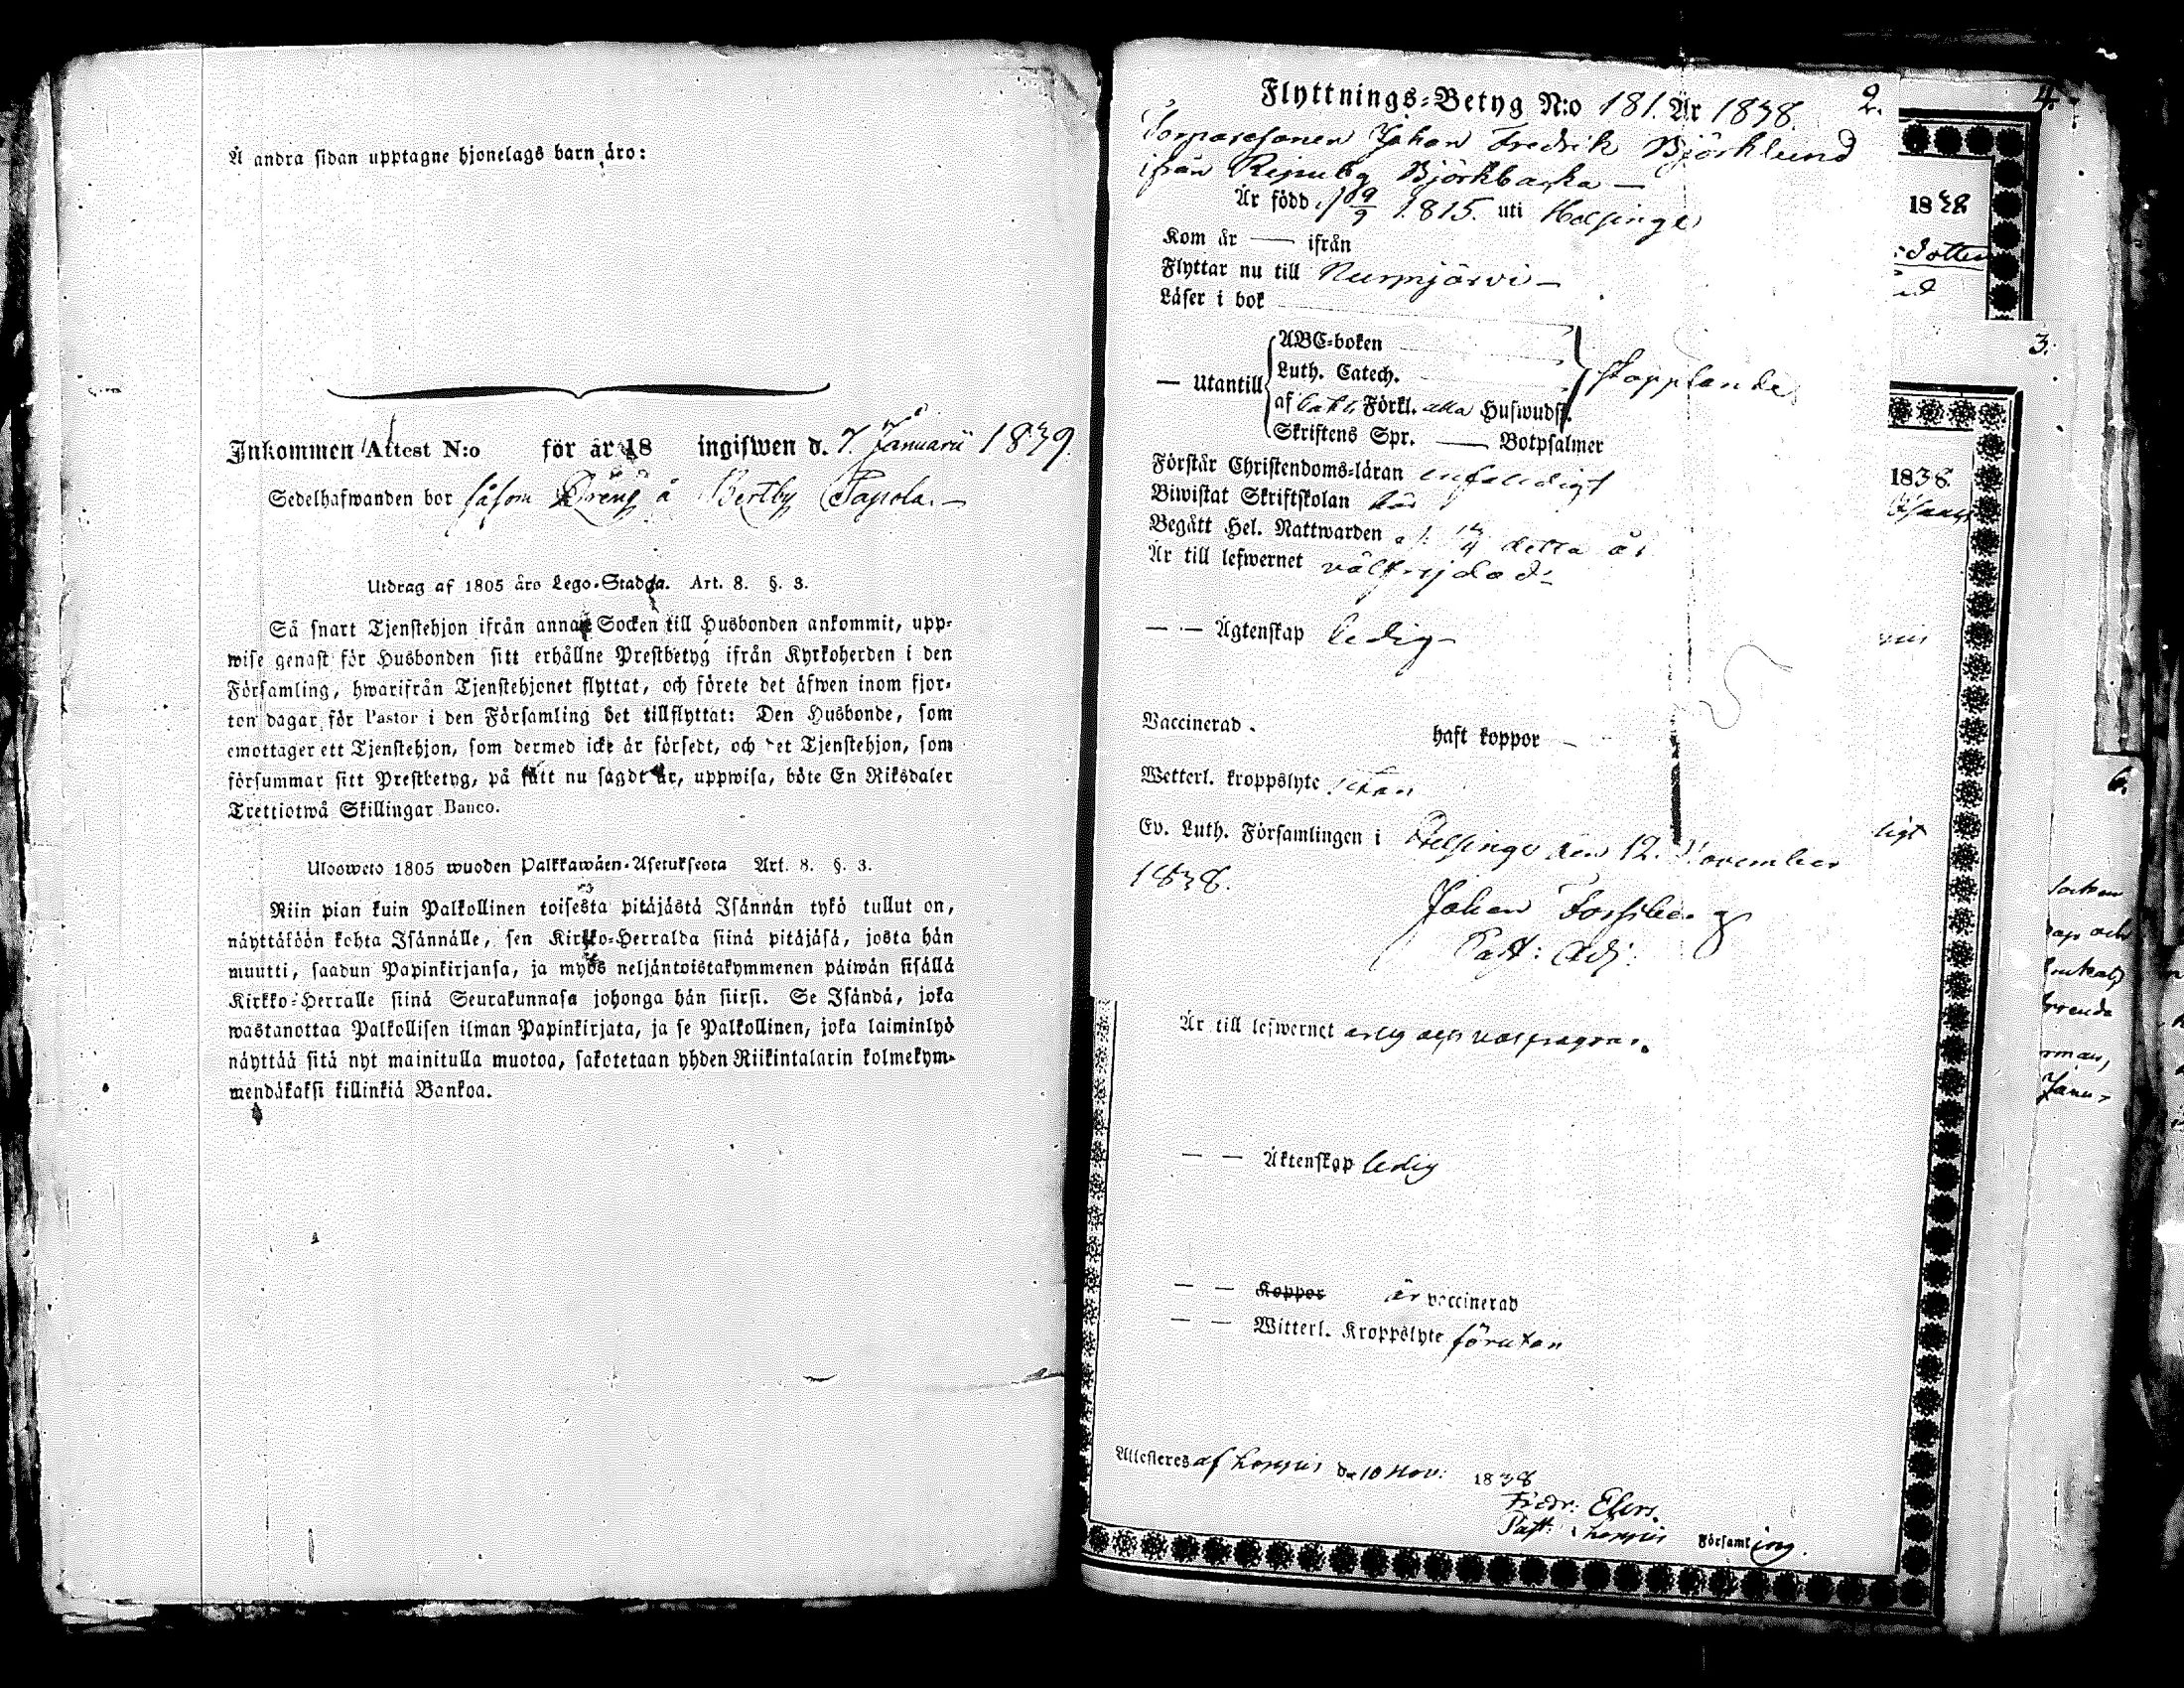 Å andra sidan upptagne hjonelags barn äro:
Inkommen Attest N:o för år 18 ingifwen d. 7. Januarii 1839.
Sedelhafwanden bor såsom Dräng å Bertby Tapola.
Utdrag af 1805 års Lego-Stadga. Art. 8. §. 3.
Så snart Tjenstehjon ifrån annan Socken till Husbonden ankommit, upp-
wise genast för Husbonden sitt erhållne Prestbetyg ifrån Kyrkoherden i den
Församling, hwarifrån Tjenstehjonet flyttat, och förete det äfwen inom fjor-
ton dagar för Pastor i den Församling det tillflyttat: Den Husbonde, som
emottager ett Tjenstehjon, som dermed icke är försedt, och det Tjenstehjon, som
försummar sitt Prestbetyg, på sätt nu sagdt är, uppwisa, böte En Riksdaler
Trettiotwå Skillingar Banco.
Ulosweto 1805 wuoden Palkkawäen-Asetuksesta Art. 8. §. 3.
Niin pian kuin Palkollinen toisesta pitäjästä Isännän tykö tullut on,
näyttäköön kohta Isännälle, sen Kirkko-Herralda siinä pitäjäsä, josta hän
muutti, saadun Papinkirjansa, ja myös neljäntoistakymmenen päiwän sisällä
Kirkko-Herralle siinä Seurakunnasa johonga hän siirsi. Se Isändä, joka
wastanottaa Palkollisen ilman Papinkirjata, ja se Palkollinen, joka laiminlyö
näyttää sitä nyt mainitulla muotoa, sakotetaan yhden Riikintalarin kolmekym-
mendäkaksi killinkiä Bankoa.
Flyttnings-Betyg N:o 181. År 1838. 2.
Torparesonen Johan Fredrik Björklund
ifrån Björkbacka —
Är född 1815. uti Helsinge
Kom år — ifrån
Flyttar nu till Nurmjärvi —
Läser i bok
ABC-boken
— Utantill Luth. Catech. stapplande
af Förkl. alla Hufwudst.
Skriftens Spr. — Botpsalmer
Förstår Christendoms-läran enfaldigt
Biwistat Skriftskolan här
Begått Hel. Nattwarden detta år
Är till lefwernet välfrejdad
— — Ägtenskap ledig —
Vaccinerad. haft koppor —
Wetterl. kroppslyte utan
Ev. Luth. Församlingen i Helsinge den 12. November
1838.
Johan Forssberg
Past: Adj:
Är till lefwernet ärlig och
— — Äktenskap ledig
— — Koppor är vaccinerad
— — Witterl. Kroppslyte förutan
Attesteras af Loppis d. 10 Nov: 1838
Fredr: Elers.
Past: i Loppis Församling.
4.
1838
dotter
3.
1838.
ligt
6.
Socken
och
Janu-